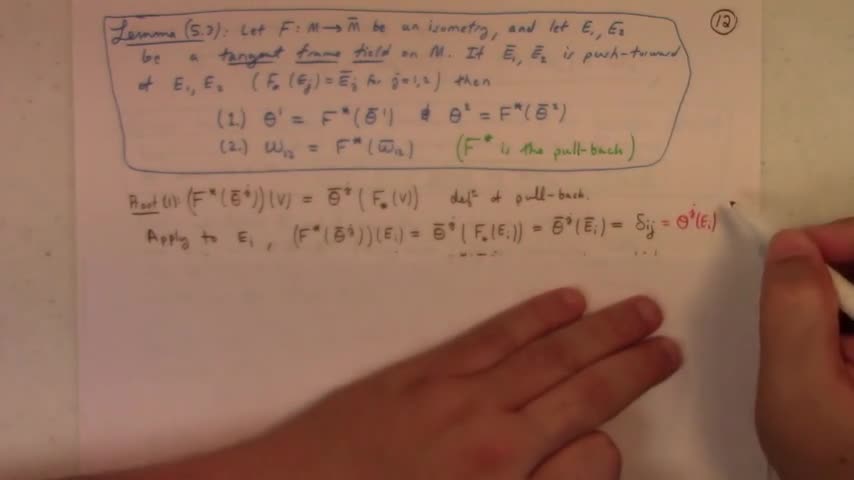 12
Lemma (5.?): Let F : M → M̄ be an isometry, and let E₁, E₂
be a tangent frame field on M. If Ē₁, Ē₂ is push-forward
of E₁, E₂ (F⁎(Eⱼ) = Ēⱼ for j=1,2) then
(1.) θ¹ = F*(θ̄¹) & θ² = F*(θ̄²)
(2.) ω₁₂ = F*(ω̄₁₂) (F* is the pull-back)
Proof (1): (F*(θ̄ʲ))(v) = θ̄ʲ(F⁎(v)) defⁿ of pull-back.
Apply to Eᵢ, (F*(θ̄ʲ))(Eᵢ) = θ̄ʲ(F⁎(Eᵢ)) = θ̄ʲ(Ēᵢ) = δᵢⱼ = θʲ(Eᵢ)